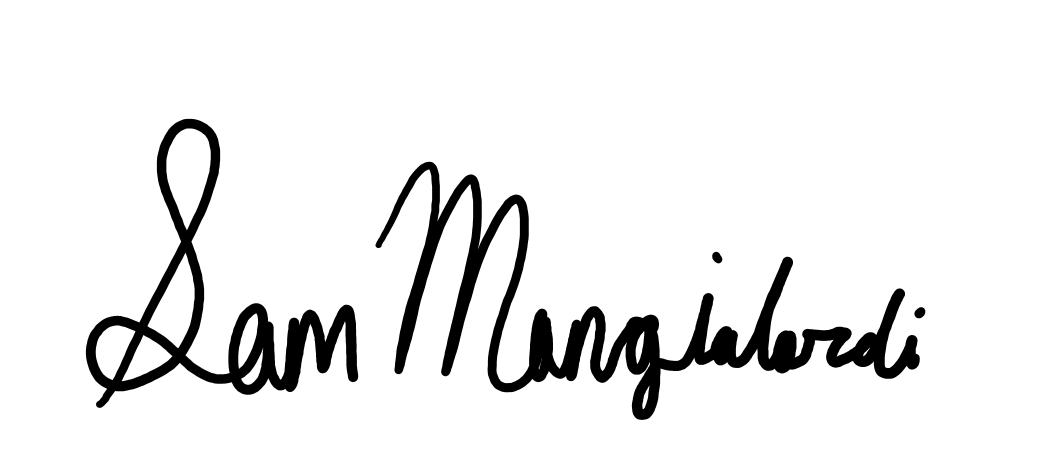 Sam Mangialardi